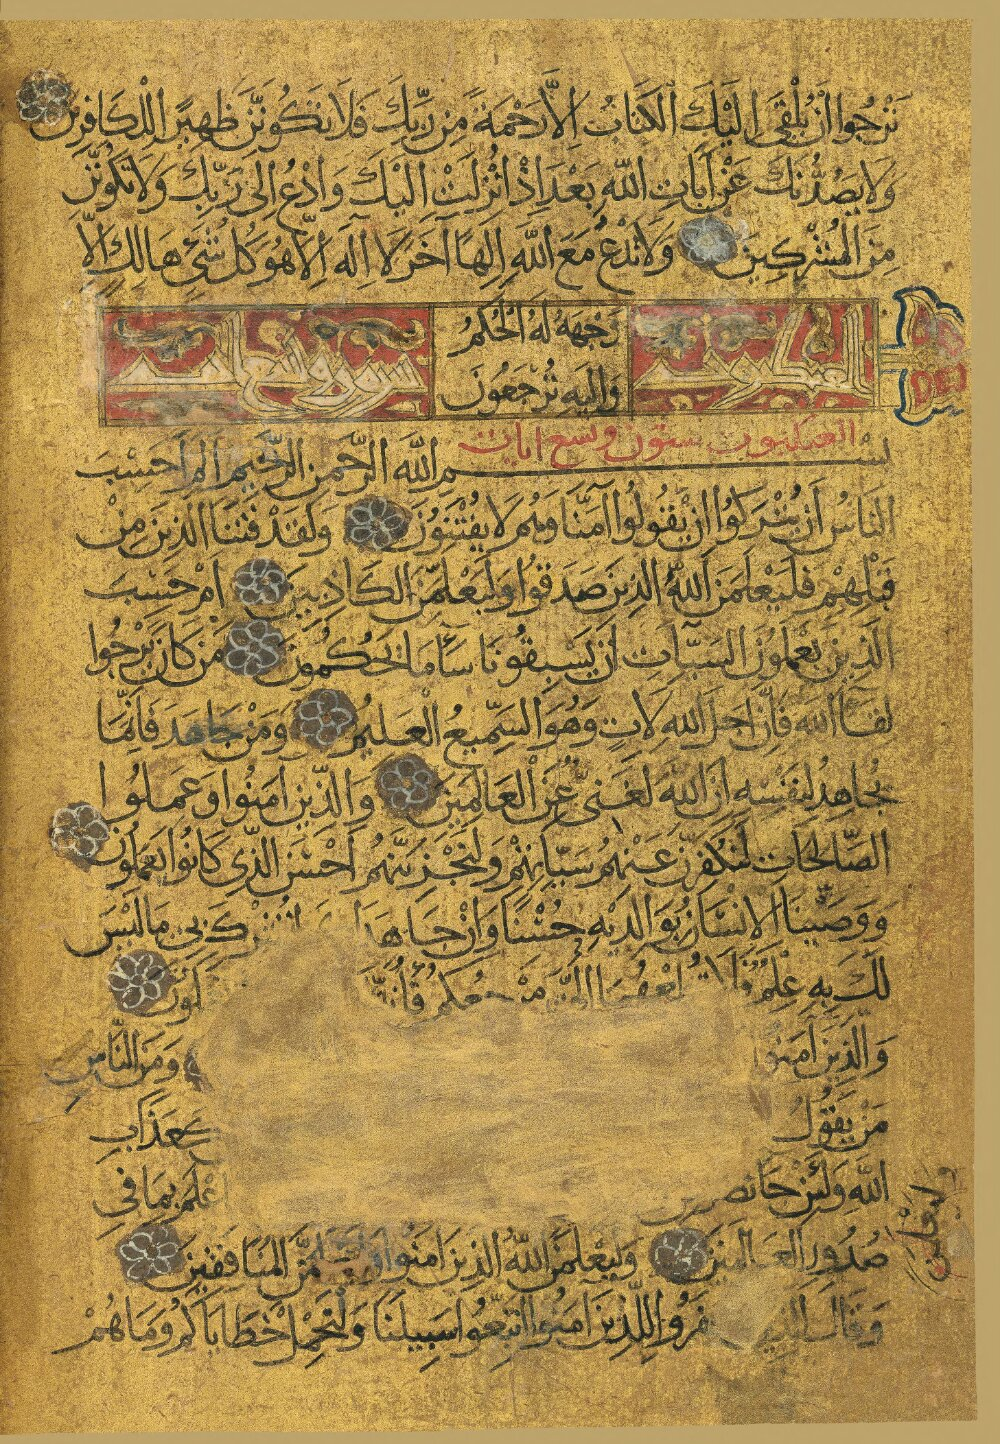 تَرْجُوا اَنْ يُلْقٰى اِلَيْكَ الْكِتَابُ اِلَّا رَحْمَةً مِنْ رَبِّكَ فَلَا تَكُونَنَّ ظَهِيرًا لِلْكَافِرِينَ
وَلَا يَصُدُّنَّكَ عَنْ اٰيَاتِ اللّٰهِ بَعْدَ اِذْ اُنْزِلَتْ اِلَيْكَ وَادْعُ اِلٰى رَبِّكَ وَلَا تَكُونَنَّ
مِنَ الْمُشْرِكِينَ وَلَا تَدْعُ مَعَ اللّٰهِ اِلٰهًا اٰخَرَ لَا اِلٰهَ اِلَّا هُوَ كُلُّ شَيْءٍ هَالِكٌ اِلَّا
وَجْهَهُ لَهُ الْحُكْمُ
وَاِلَيْهِ تُرْجَعُونَ
العنكبوت ستون وتسع ايات
بِسْمِ اللّٰهِ الرَّحْمٰنِ الرَّحِيمِ الم اَحَسِبَ
النَّاسُ اَنْ يُتْرَكُوا اَنْ يَقُولُوا اٰمَنَّا وَهُمْ لَا يُفْتَنُونَ وَلَقَدْ فَتَنَّا الَّذِينَ مِنْ
قَبْلِهِمْ فَلَيَعْلَمَنَّ اللّٰهُ الَّذِينَ صَدَقُوا وَلَيَعْلَمَنَّ الْكَاذِبِينَ اَمْ حَسِبَ
الَّذِينَ يَعْمَلُونَ السَّيِّاٰتِ اَنْ يَسْبِقُونَا سَاۤءَ مَا يَحْكُمُونَ مَنْ كَانَ يَرْجُوا
لِقَاۤءَ اللّٰهِ فَاِنَّ اَجَلَ اللّٰهِ لَاٰتٍ وَهُوَ السَّمِيعُ الْعَلِيمُ وَمَنْ جَاهَدَ فَاِنَّمَا
يُجَاهِدُ لِنَفْسِهِ اِنَّ اللّٰهَ لَغَنِيٌّ عَنِ الْعَالَمِينَ وَالَّذِينَ اٰمَنُوا وَعَمِلُوا
الصَّالِحَاتِ لَنُكَفِّرَنَّ عَنْهُمْ سَيِّاٰتِهِمْ وَلَنَجْزِيَنَّهُمْ اَحْسَنَ الَّذِي كَانُوا يَعْمَلُونَ
وَوَصَّيْنَا الْاِنْسَانَ بِوَالِدَيْهِ حُسْنًا وَاِنْ جَاهَدَا لِتُشْرِكَ بِي مَا لَيْسَ
لَكَ بِهِ عِلْمٌ فَلَا تُطِعْهُمَا اِلَيَّ مَرْجِعُكُمْ
وَالَّذِينَ اٰمَنُوا وَمِنَ النَّاسِ
مَنْ يَقُولُ كَعَذَابِ
اللّٰهِ وَلَئِنْ جَاۤءَ نَصْرٌ بِمَا فِي
صُدُورِ الْعَالَمِينَ وَلَيَعْلَمَنَّ اللّٰهُ الَّذِينَ اٰمَنُوا وَلَيَعْلَمَنَّ الْمُنَافِقِينَ
وَقَالَ الَّذِينَ كَفَرُوا لِلَّذِينَ اٰمَنُوا اتَّبِعُوا سَبِيلَنَا وَلْنَحْمِلْ خَطَايَاكُمْ وَمَا هُمْ